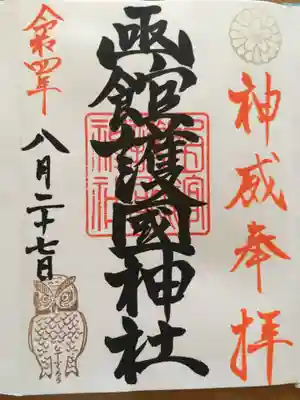 神威奉拝
函館護國神社
令和四年
八月二十七日